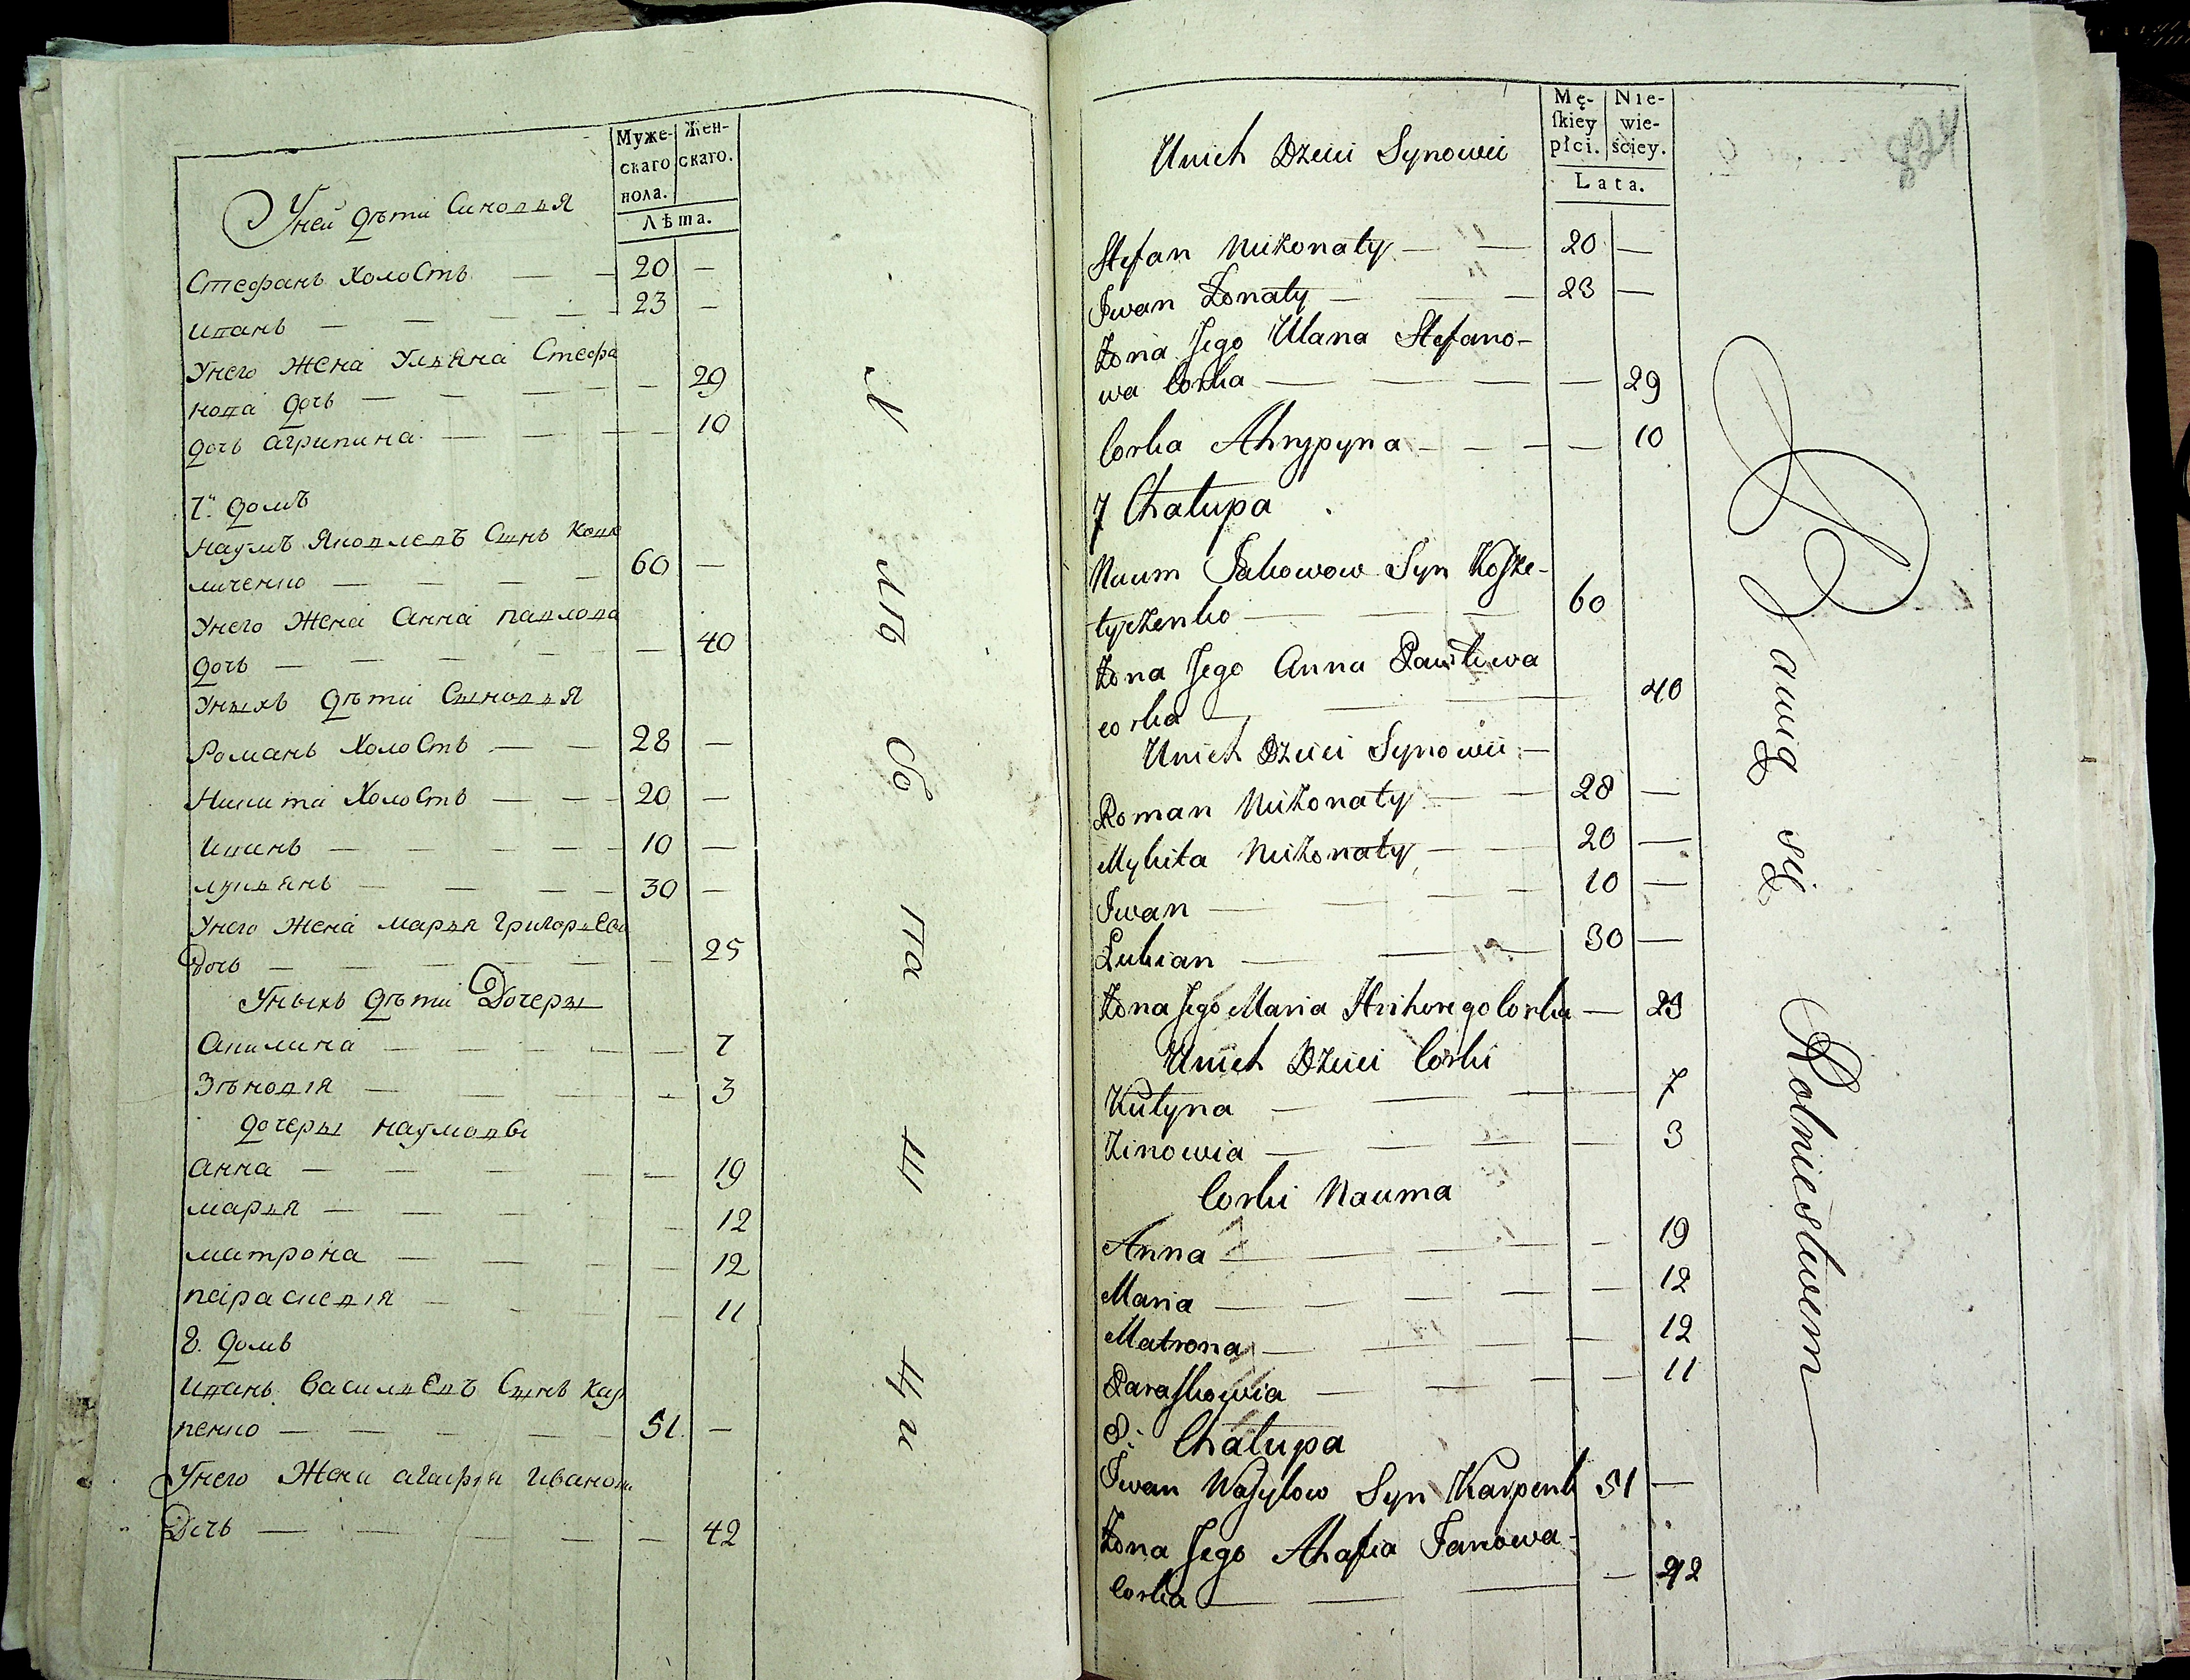 Муже-
скаго
пола.
Жен-
скаго.
Лѣта.
Уней дѣти Синовья
Стефанъ холостъ — — 20 —
Иванъ — — — — 23 —
Унего жена Ульяна Стефа
нова дочь — — — — 29
дочь агрипина — — — — 10
7. домъ
наумъ Яковлевъ Сынъ
личенко — — — — 60 —
Унего жена анна павлова
дочь — — — — — 40
Уныхъ дѣти Сыновья
Романъ холостъ — — 28 —
Никита холостъ — — 20 —
Иванъ — — — — — 10 —
лукьянъ — — — — 30 —
Унего жена марья григорьева
дочь — — — — — 25
Уныхъ дѣти Дочеры
Акилина — — — — — 7
Зѣновія — — — — 3
дочеры наумовы
анна — — — — — 19
марья — — — — 12
митрона — — — — 12
параскевія — — — — 11
8. домъ
Иванъ Васильевъ Сынъ Кар
пенко — — — — 51 —
Унего Жена агафия Иванова
Дочь — — — — — 42
хлѣбопашци
Mę-
ſkiey
płci.
Nie-
wie-
ściey.
Lata.
824
Unich Dzieci Synowii
Stefan Niżonaty — — 20 —
Iwan Żonaty — — — 23 —
Żona Jego Ulana Stefano-
wa Corka — — — — — 29
Corka Ahrypyna — — — — 10
7 Chałupa
Naum Jakowow Syn Koſze-
łyczenko — — — 60
Żona Jego Anna Pawłowa
corka — — — 40
Unich Dzieci Synowii —
Roman Niżonaty — — 28 —
Mykita Niżonaty — — 20 —
Iwan — — — — 10 —
Lukian — — — 30 —
Żona Jego Maria Hrihorego Corka — 29
Unich Dzieci Corki
Kułyna — — — — 7
Zinowia — — — — 3
Corki Nauma
Anna — — — — — 19
Maria — — — — — 12
Matrona — — — — 12
Paraſkowia — — — — 11
8. Chałupa
Iwan Waſylow Syn Karpenk 51 —
Żona Jego Ahafia Janowa-
Corka — — — — 42
Bawią się Rolnictwem